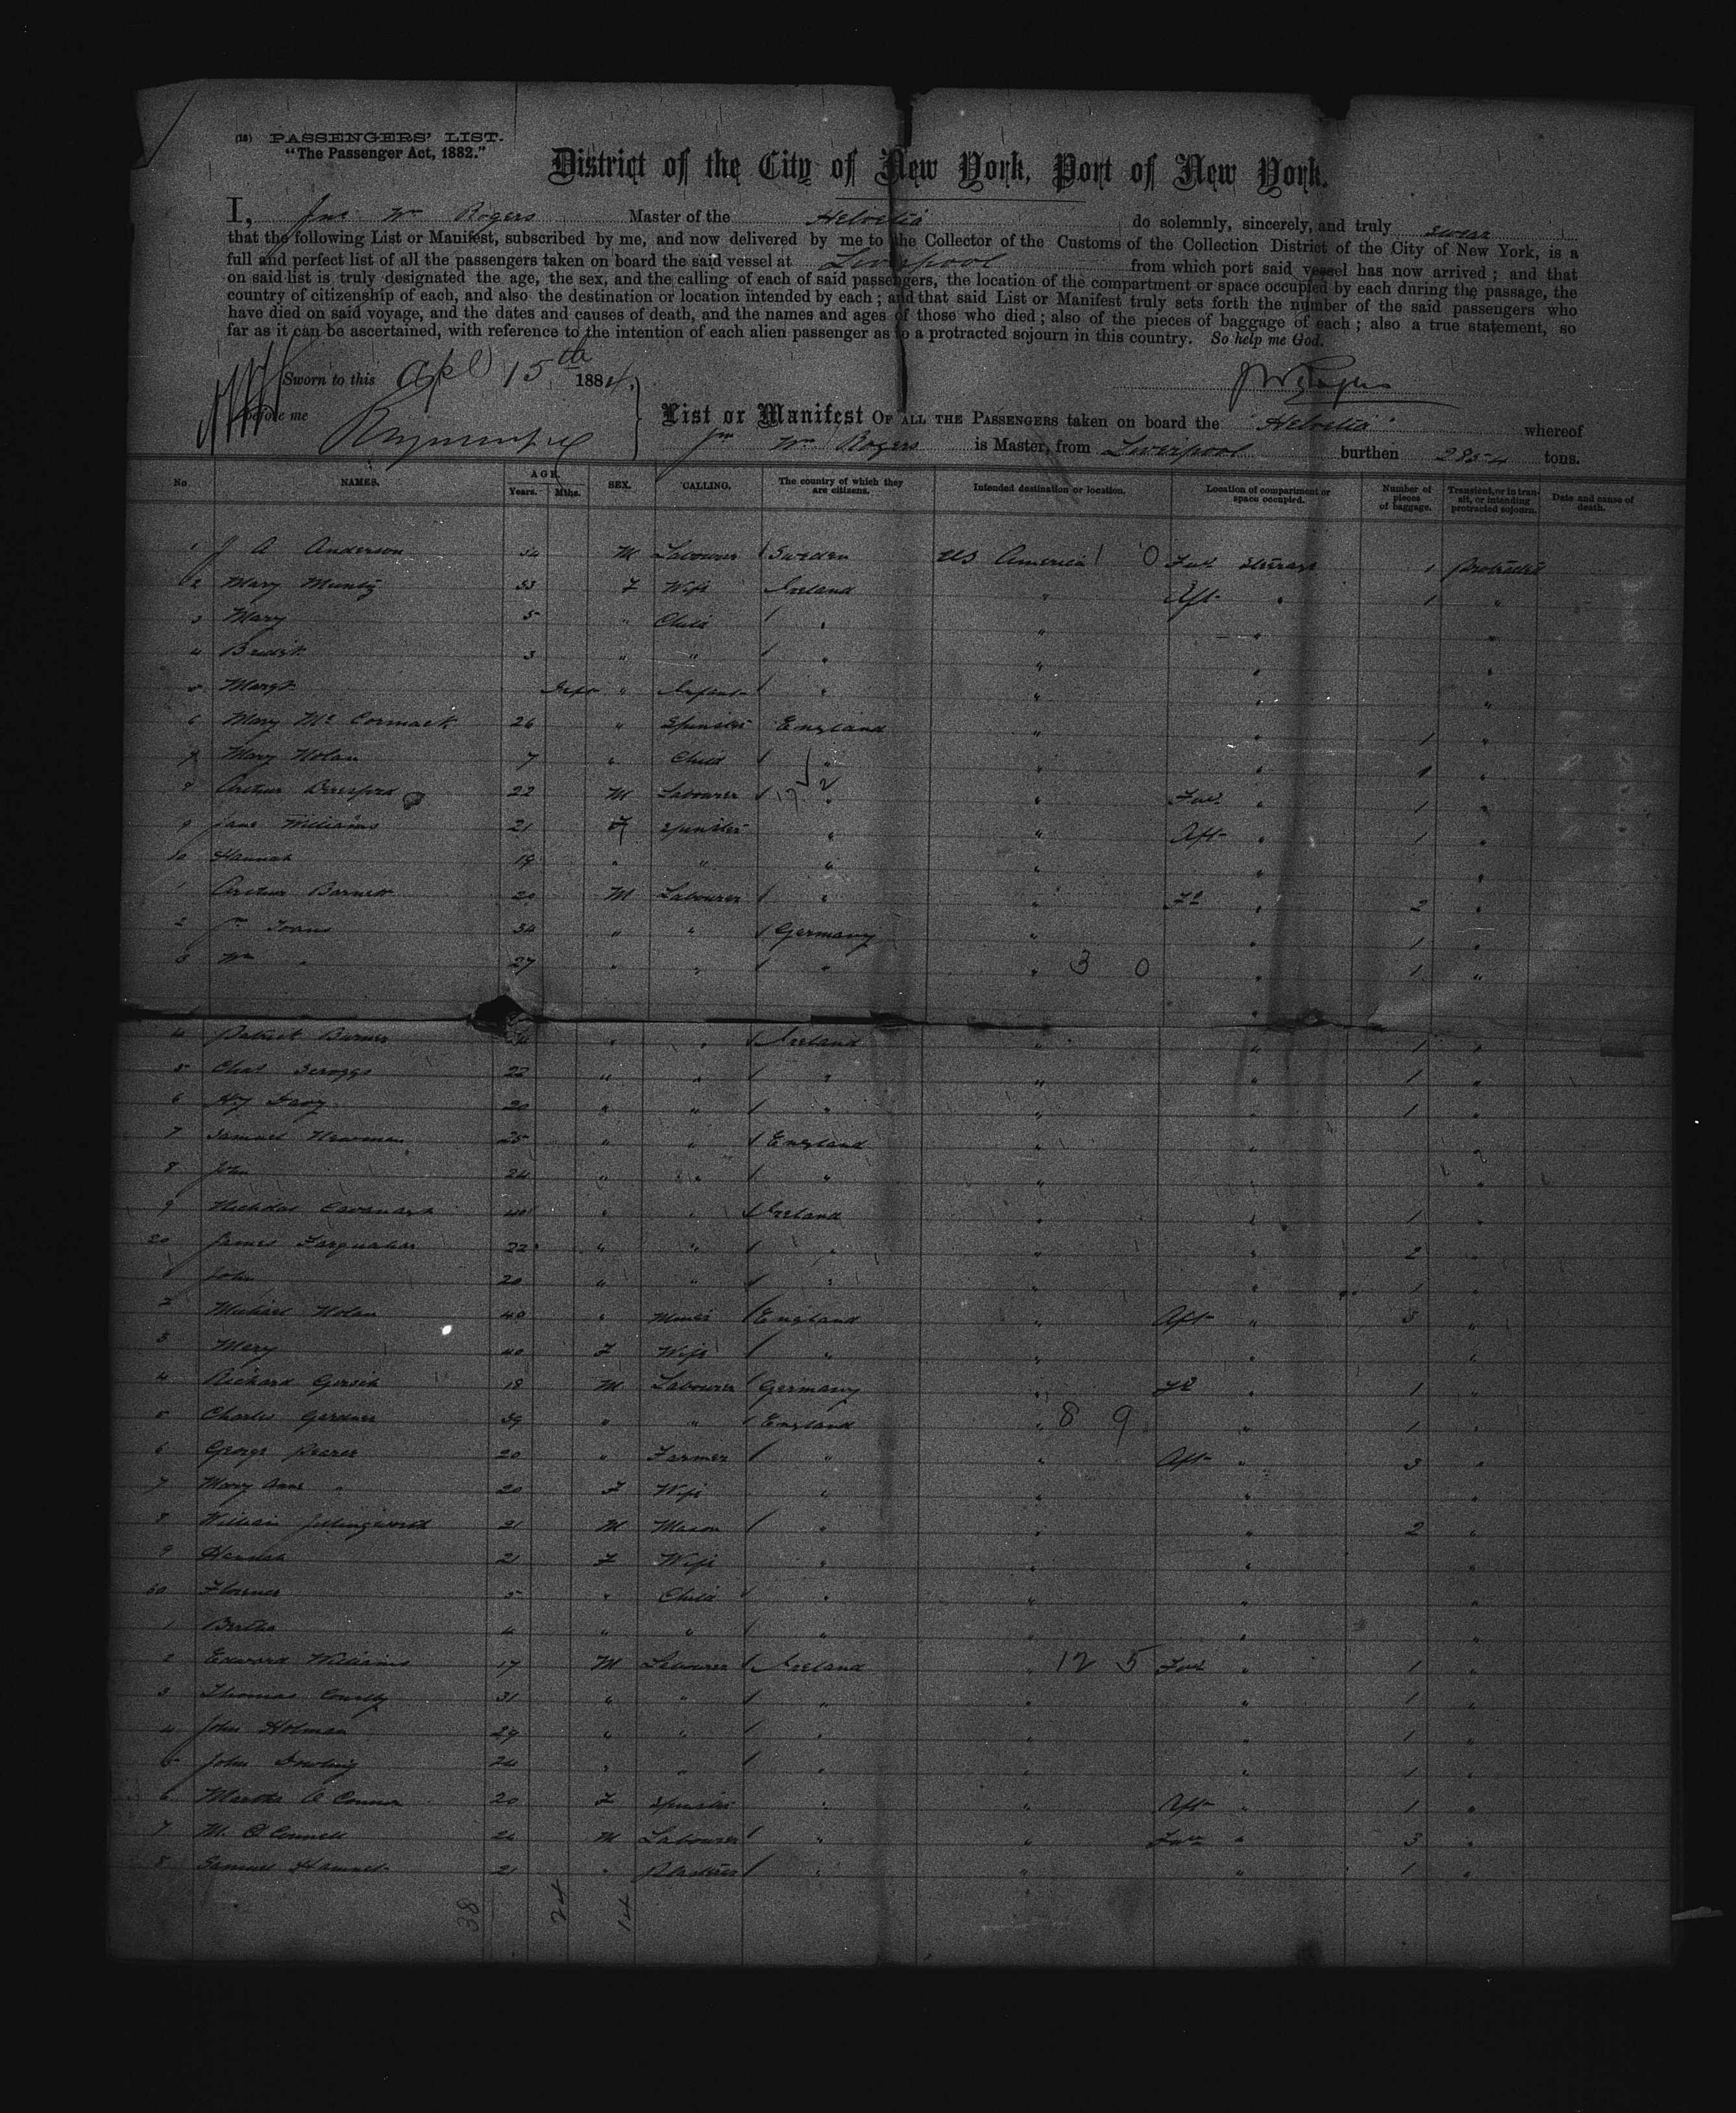 (18) PASSENGERS' LIST.
"The Passenger Act, 1882."
District of the City of New York, Port of New York.
I, Jno Wm Rogers Master of the Helvetia do solemnly, sincerely, and truly swear
that the following List or Manifest, subscribed by me, and now delivered by me to the Collector of the Customs of the Collection District of the City of New York, is a
full and perfect list of all the passengers taken on board the said vessel at Liverpool from which port said vessel has now arrived; and that
on said list is truly designated the age, the sex, and the calling of each of said passengers, the location of the compartment or space occupied by each during the passage, the
country of citizenship of each, and also the destination or location intended by each; and that said List or Manifest truly sets forth the number of the said passengers who
have died on said voyage, and the dates and causes of death, and the names and ages of those who died; also of the pieces of baggage of each; also a true statement, so
far as it can be ascertained, with reference to the intention of each alien passenger as to a protracted sojourn in this country. So help me God.
Sworn to this Apl 15th 1884. J W Rogers
before me
List or Manifest OF ALL THE PASSENGERS taken on board the "Helvetia" whereof
Jno Wm Rogers is Master, from Liverpool burthen 2854 tons.
No. NAMES. AGE. Years. Mths. SEX. CALLING. The country of which they are citizens. Intended destination or location. Location of compartment or space occupied. Number of pieces of baggage. Transient, or in transit, or intending protracted sojourn. Date and cause of death.
1 J A Anderson 34 M Labourer Sweden US America 1 0 Fwd Steerage 1 Protracted
2 Mary Munty 33 F Wife Ireland " Aft " 1 "
3 Mary 5 " Child " " " "
4 Bridgt 3 " " " " " "
5 Margt Inft " Infant " " " "
6 Mary Mc Cormack 26 " Spinster England " " 1 "
7 Mary Nolan 7 " Child " " " 1 "
8 Arthur Beresford 22 M Labourer 17 2 " " Fwd " 1 "
9 Jane Williams 21 F Spinster " " Aft " 1 "
10 Hannah 19 " " " " " "
1 Arthur Barnett 20 M Labourer " " Fd " 2 "
2 Jno 34 " " Germany " " 1 "
3 Wm " 27 " " " " 3 0 " 1 "
4 Patrick " " Ireland " " 1 "
5 Chas Scroggs 22 " " " " " 1 "
6 Hy Davy 20 " " " " " 1 "
7 Samuel Newman 25 " " England " " "
8 John 24 " " " " " "
9 Nicholas Cavanagh 40 " " Ireland " " 1 "
20 James Farquahar 22 " " " " " 2 "
1 John 20 " " " " " 1 "
2 Michael Nolan 40 " Miner England " Aft " 3 "
3 Mary 40 F Wife " " " "
4 Richard Girsch 18 M Labourer Germany " Fd " 1 "
5 Charles Gardner 39 " " England " 8 9 " 1 "
6 George 20 " Farmer " " Aft " 3 "
7 Mary Anne " 20 F Wife " " " "
8 William Jillingworth 21 M Mason " " " 2 "
9 Hannah 21 F Wife " " " "
30 Florence 5 " Child " " " "
1 Bertha 4 " " " " " "
2 Edward Williams 17 M Labourer Ireland " 12 5 Fwd " 1 "
3 Thomas Connelly 31 " " " " " 1 "
4 John Holman 29 " " " " " 1 "
5 John Dowling 24 " " " " " 1 "
6 Martha O Connor 20 F Spinster " " Aft " 1 "
7 M. O Connell 24 M Labourer " " Fwd " 3 "
8 Samuel 21 " Plasterer " " " 1 "
38 24 14